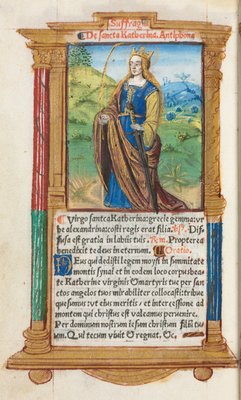 Suffrag
De sancta Katherina. Antiphona
Virgo sancta Katherina: grecie gemma: vr
be alexandrina: costi regis erat filia. Dif
fusa est gratia in labiis tuis. Propterea
benedixit te deus in eternum. Oratio.
Deus qui dedisti legem moysi in summitate
montis synai et in eodem loco corpus bea
te Katherine virginis & martyris tue per san
ctos angelos tuos mirabiliter collocasti: tribue
quesumus vt eius meritis, et intercessione ad
montem qui christus est valeamus peruenire.
Per dominum nostrum iesum christum filium tuū
um. Qui tecum viuit & regnat, &c.